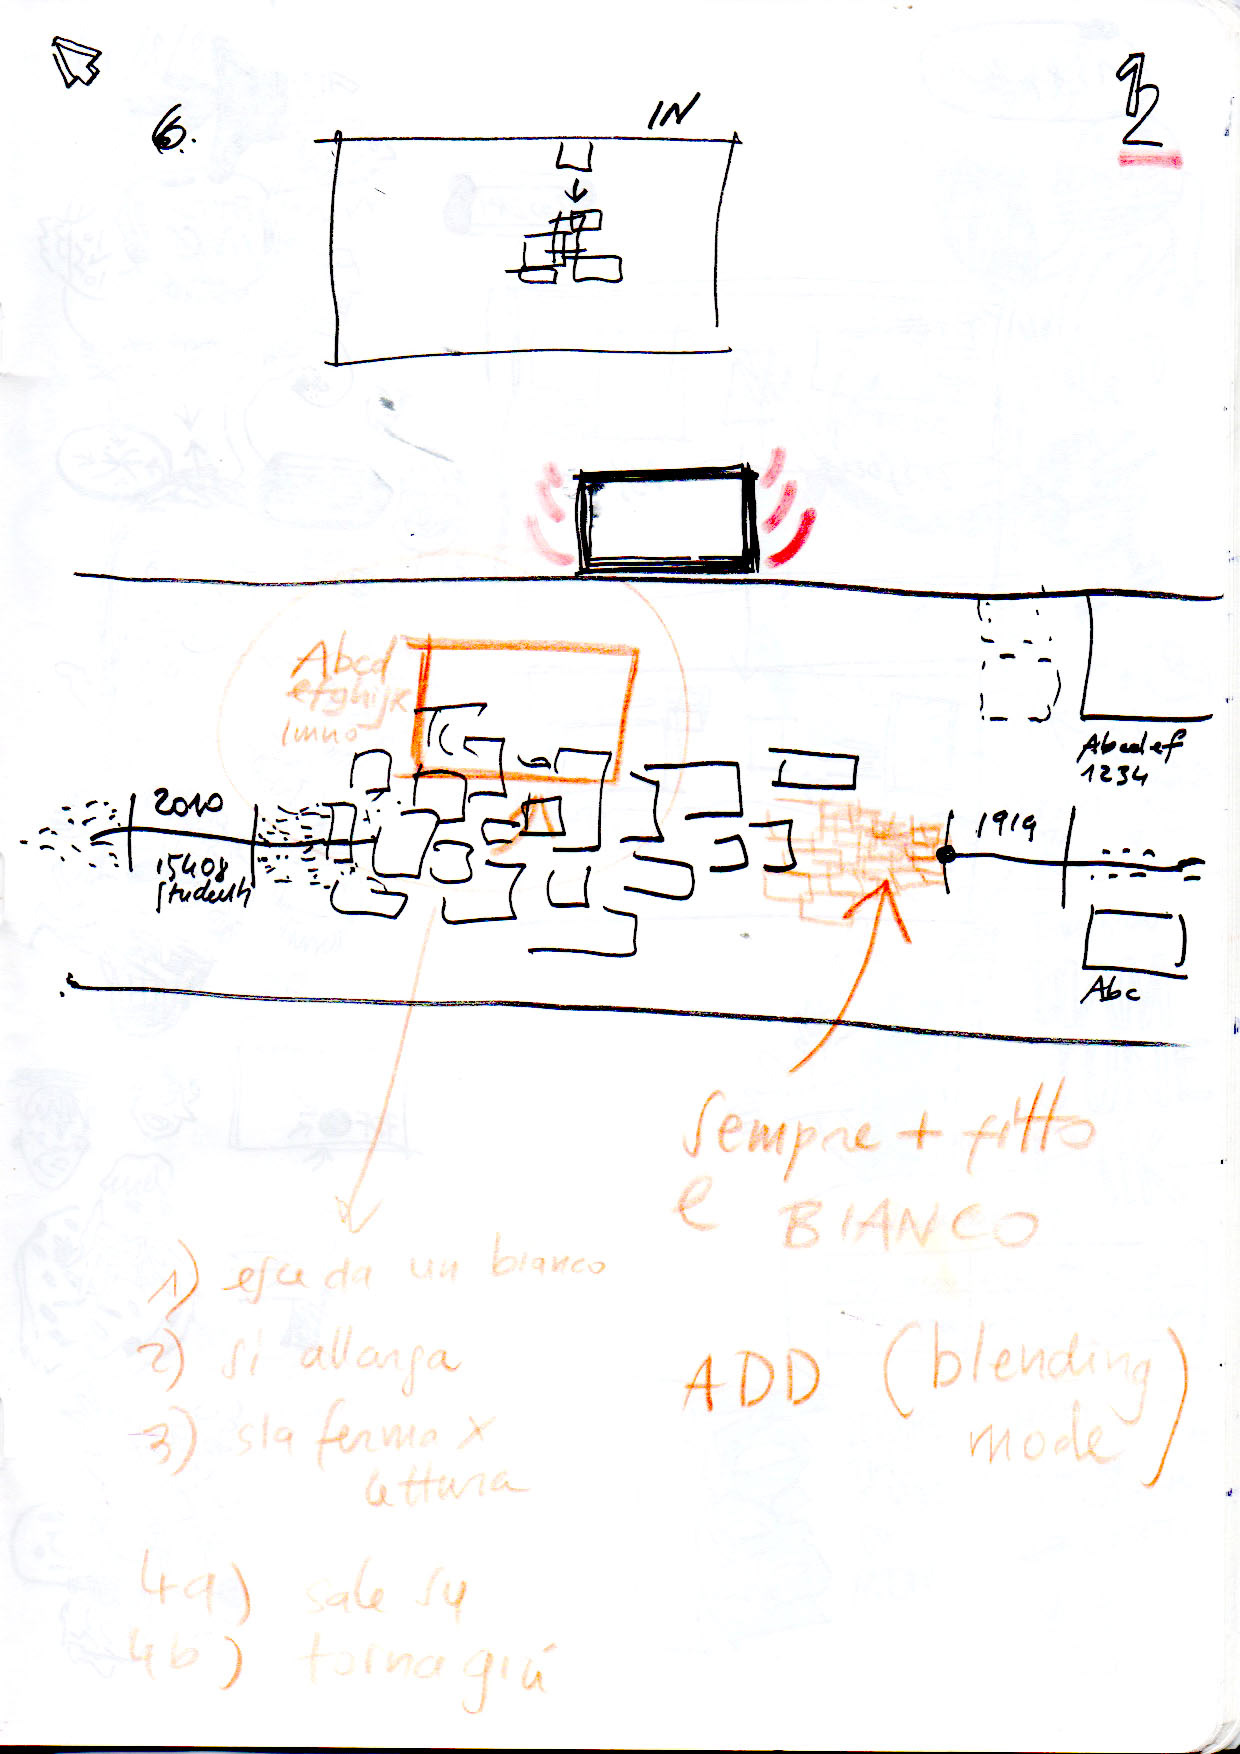 6.
IN
2
Abcd
efghijk
lmno
2010
15408
studenti
1919
Abcdef
1234
Abc
sempre + fitto
e BIANCO
1) esce da un bianco
2) si allarga
3) sta fermo x
lettura
4a) sale su
4b) torna giù
ADD (blending
mode)